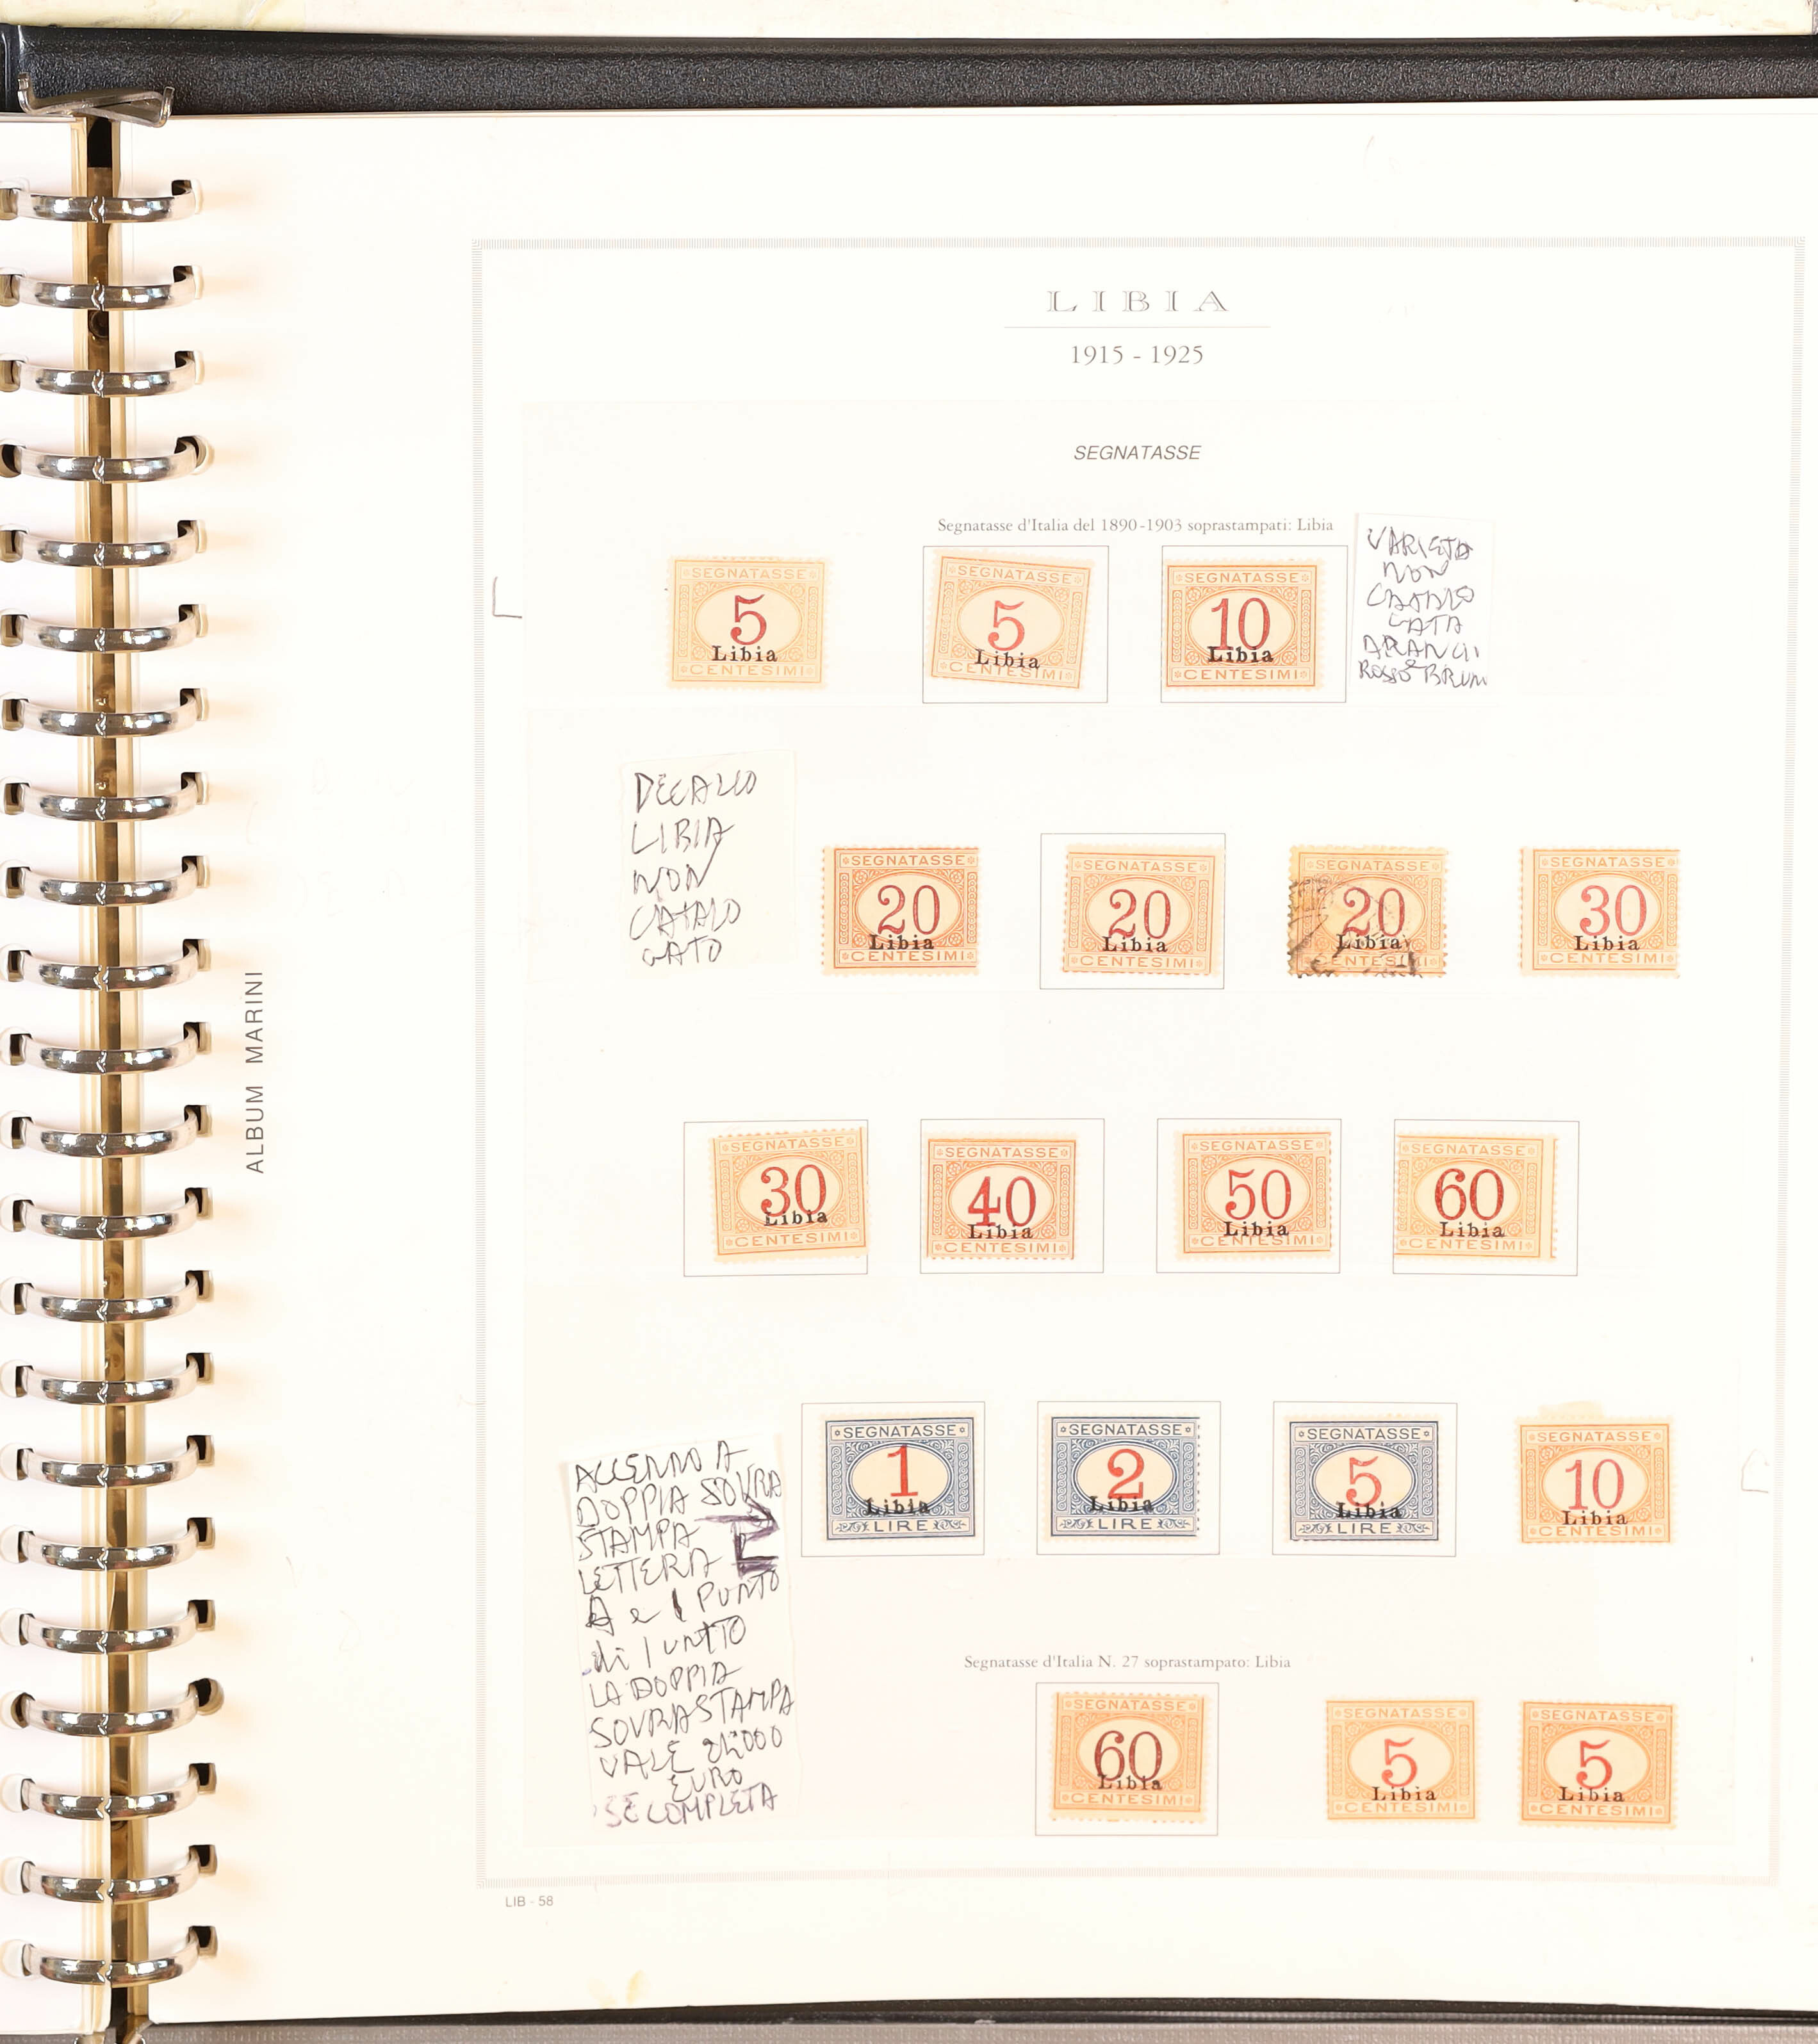 LIBIA
1915 - 1925
SEGNATASSE
Segnatasse d'Italia del 1890-1903 soprastampati: Libia
SEGNATASSE
5
Libia
CENTESIMI
SEGNATASSE
5
Libia
CENTESIMI
SEGNATASSE
10
Libia
CENTESIMI
VARIETA
NON
CATALO
GATA
ARANCI
ROSSO BRUN
DECALCO
LIBIA
NON
CATALO
GATO
SEGNATASSE
20
Libia
CENTESIMI
SEGNATASSE
20
Libia
CENTESIMI
SEGNATASSE
20
Libia
CENTESIMI
SEGNATASSE
30
Libia
CENTESIMI
ALBUM MARINI
SEGNATASSE
30
Libia
CENTESIMI
SEGNATASSE
40
Libia
CENTESIMI
SEGNATASSE
50
Libia
CENTESIMI
SEGNATASSE
60
Libia
CENTESIMI
ACCENNO A
DOPPIA SOVRA
STAMPA
LETTERA
A e 1 PUNTO
di
LA DOPPIA
SOVRASTAMPA
VALE
EURO
SE COMPLETA
SEGNATASSE
1
Libia
LIRE
SEGNATASSE
2
Libia
LIRE
SEGNATASSE
5
Libia
LIRE
SEGNATASSE
10
Libia
CENTESIMI
Segnatasse d'Italia N. 27 soprastampato: Libia
SEGNATASSE
60
Libia
CENTESIMI
SEGNATASSE
5
Libia
CENTESIMI
SEGNATASSE
5
Libia
CENTESIMI
LIB - 58